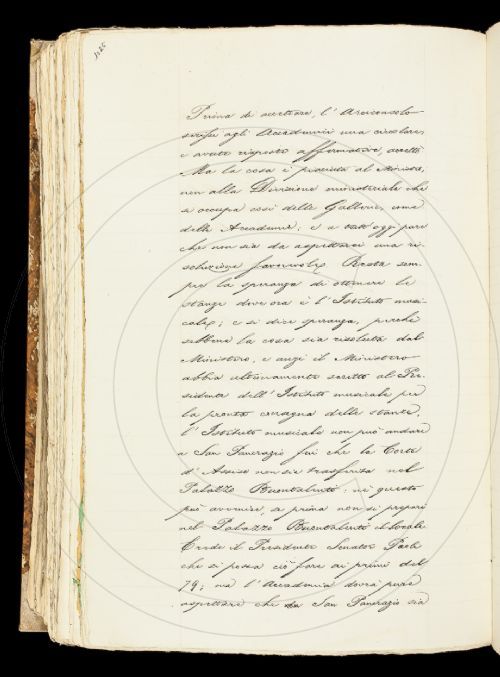 1025
Prima di accettare, l'Arciconsolo
scrisse agli Accademici una circolare,
e avute risposte affermative, accettò
Ma la cosa è piaciuta al Ministro,
non alla Divisione ministeriale che
si occupa così delle Gallerie, come
delle Accademie; e a tutt'oggi pare
che non sia da aspettarsi una ri=
soluzione favorevole. Resta sem=
pre la speranza di ottenere le
stanze dove ora è l'Istituto musi=
cale; e si dice speranza, perchè
sebbene la cosa sia risoluta dal
Ministero, e anzi il Ministero
abbia ultimamente scritto al Pre=
sidente dell'Istituto musicale per
la pronta consegna delle stanze,
l'Istituto musicale non può andare
a San Pancrazio fin che la Corte
d'Assise non sia trasferita nel
Palazzo Buontalenti; nè questo
può avvenire, se prima non si prepari
nel Palazzo Buontalenti il locale
Crede il Presidente Senator Paoli
che si possa ciò fare ai primi del
79; ma l'Accademia dovrà pure
aspettare che San Pancrazio sia